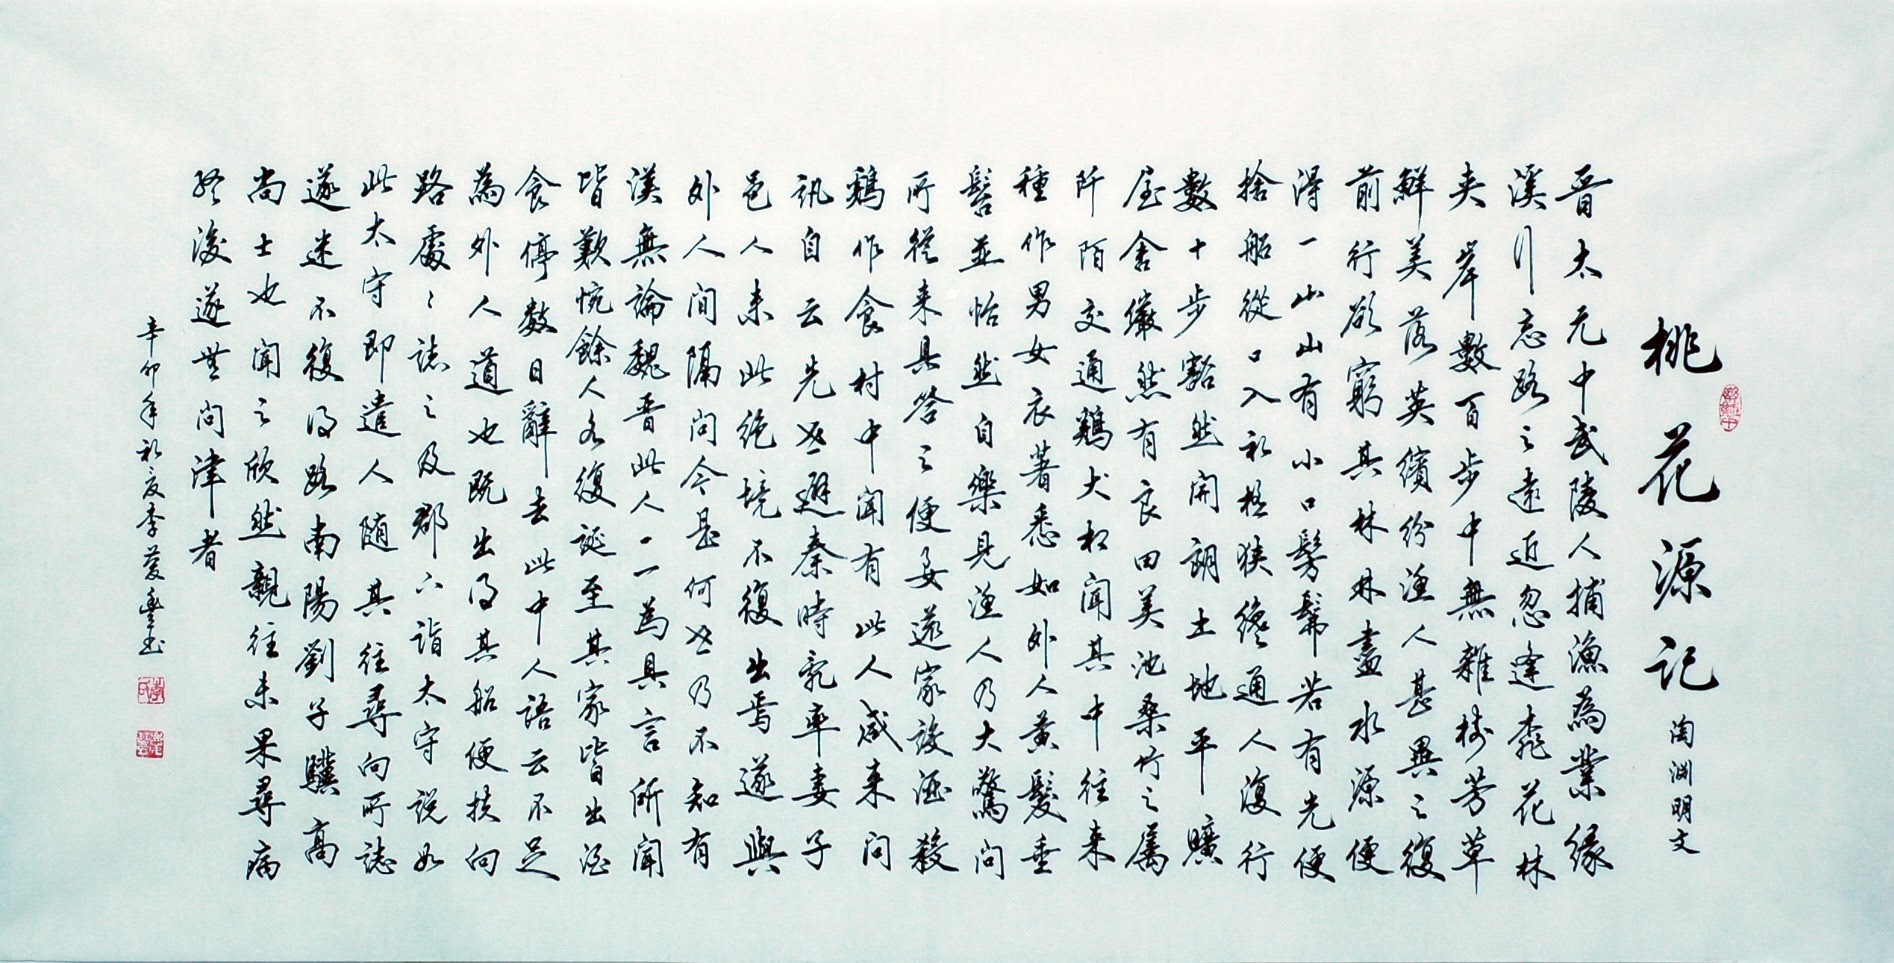 桃花源記
陶淵明文
晋太元中武陵人捕漁為業緣
溪行忘路之遠近忽逢桃花林
夹岸數百步中無雜樹芳草
鮮美落英繽紛漁人甚異之復
前行欲窮其林林盡水源便
得一山山有小口髣髴若有光便
捨船從口入初極狹纔通人復行
數十步豁然開朗土地平曠
屋舍儼然有良田美池桑竹之屬
阡陌交通鷄犬相聞其中往来
種作男女衣著悉如外人黄髮垂
髫並怡然自樂見漁人乃大驚問
所從来具答之便要還家設酒殺
鷄作食村中聞有此人咸来問
訊自云先世避秦時亂率妻子
邑人来此绝境不復出焉遂與
外人間隔問今是何世乃不知有
漢無論魏晋此人一一為具言所聞
皆歎惋餘人各復延至其家皆出酒
食停数日辭去此中人語云不足
為外人道也既出得其船便扶向
路處處誌之及郡下詣太守説如
此太守即遣人随其往尋向所誌
遂迷不復得路南陽劉子驥高
尚士也聞之欣然親往未果尋病
终後遂無問津者
辛卯年初夏李慶豐书